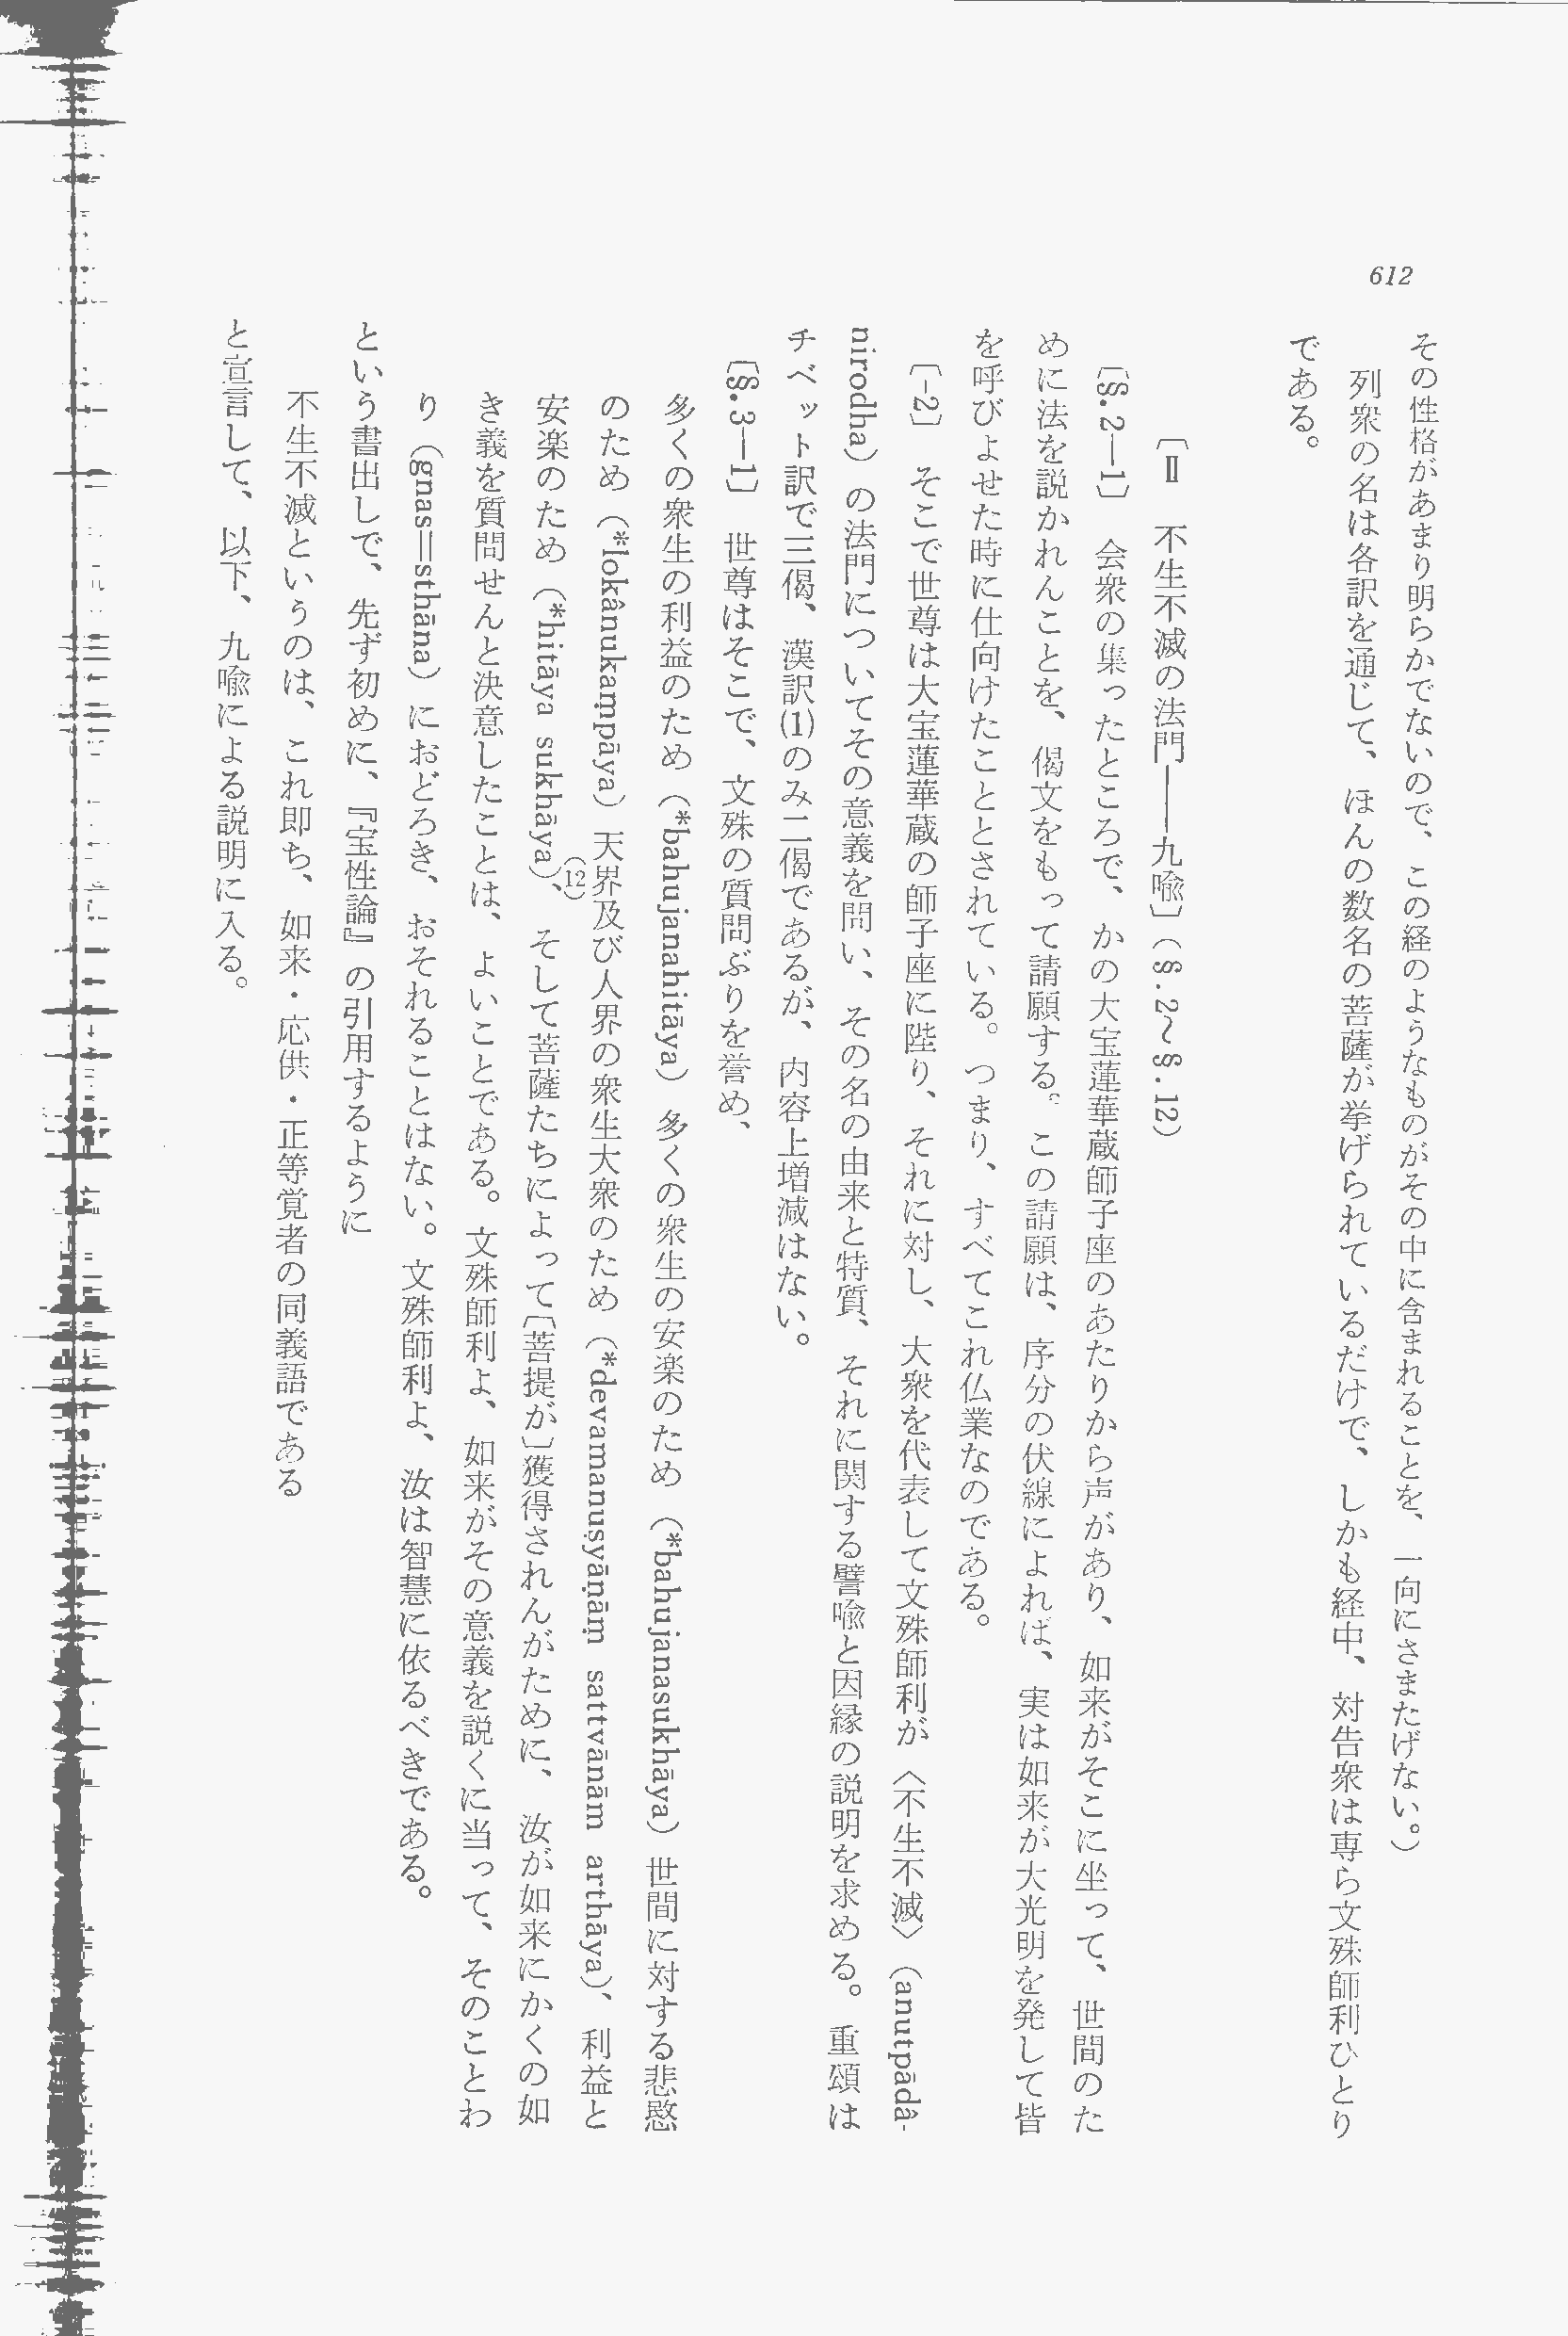 612
その性格があまり明らかでないので、この経のようなものがその中に含まれることを、一向にさまたげない。）
列衆の名は各訳を通じて、ほんの数名の菩薩が挙げられているだけで、しかも経中、対告衆は専ら文殊師利ひとり
である。
〔Ⅱ 不生不滅の法門――九喩〕（§.2～§.12）
〔§.2―1〕 会衆の集ったところで、かの大宝蓮華蔵師子座のあたりから声があり、如来がそこに坐って、世間のた
めに法を説かれんことを、偈文をもって請願する。この請願は、序分の伏線によれば、実は如来が大光明を発して皆
を呼びよせた時に仕向けたこととされている。つまり、すべてこれ仏業なのである。
〔-2〕 そこで世尊は大宝蓮華蔵の師子座に陞り、それに対し、大衆を代表して文殊師利が〈不生不滅〉（anutpādâ-
nirodha）の法門についてその意義を問い、その名の由来と特質、それに関する譬喩と因縁の説明を求める。重頌は
チベット訳で三偈、漢訳(1)のみ二偈であるが、内容上増減はない。
〔§.3―1〕 世尊はそこで、文殊の質問ぶりを誉め、
多くの衆生の利益のため（*bahujanahitāya）多くの衆生の安楽のため（*bahujanasukhāya）世間に対する悲愍
のため（*lokânukaṃpāya）天界及び人界の衆生大衆のため（*devamanuṣyāṇāṃ sattvānām arthāya）、利益と
安楽のため（*hitāya sukhāya）、(12)そして菩薩たちによって〔菩提が〕獲得されんがために、汝が如来にかくの如
き義を質問せんと決意したことは、よいことである。文殊師利よ、如来がその意義を説くに当って、そのことわ
り（gnas＝sthāna）におどろき、おそれることはない。文殊師利よ、汝は智慧に依るべきである。
という書出しで、先ず初めに、『宝性論』の引用するように
不生不滅というのは、これ即ち、如来・応供・正等覚者の同義語である
と宣言して、以下、九喩による説明に入る。